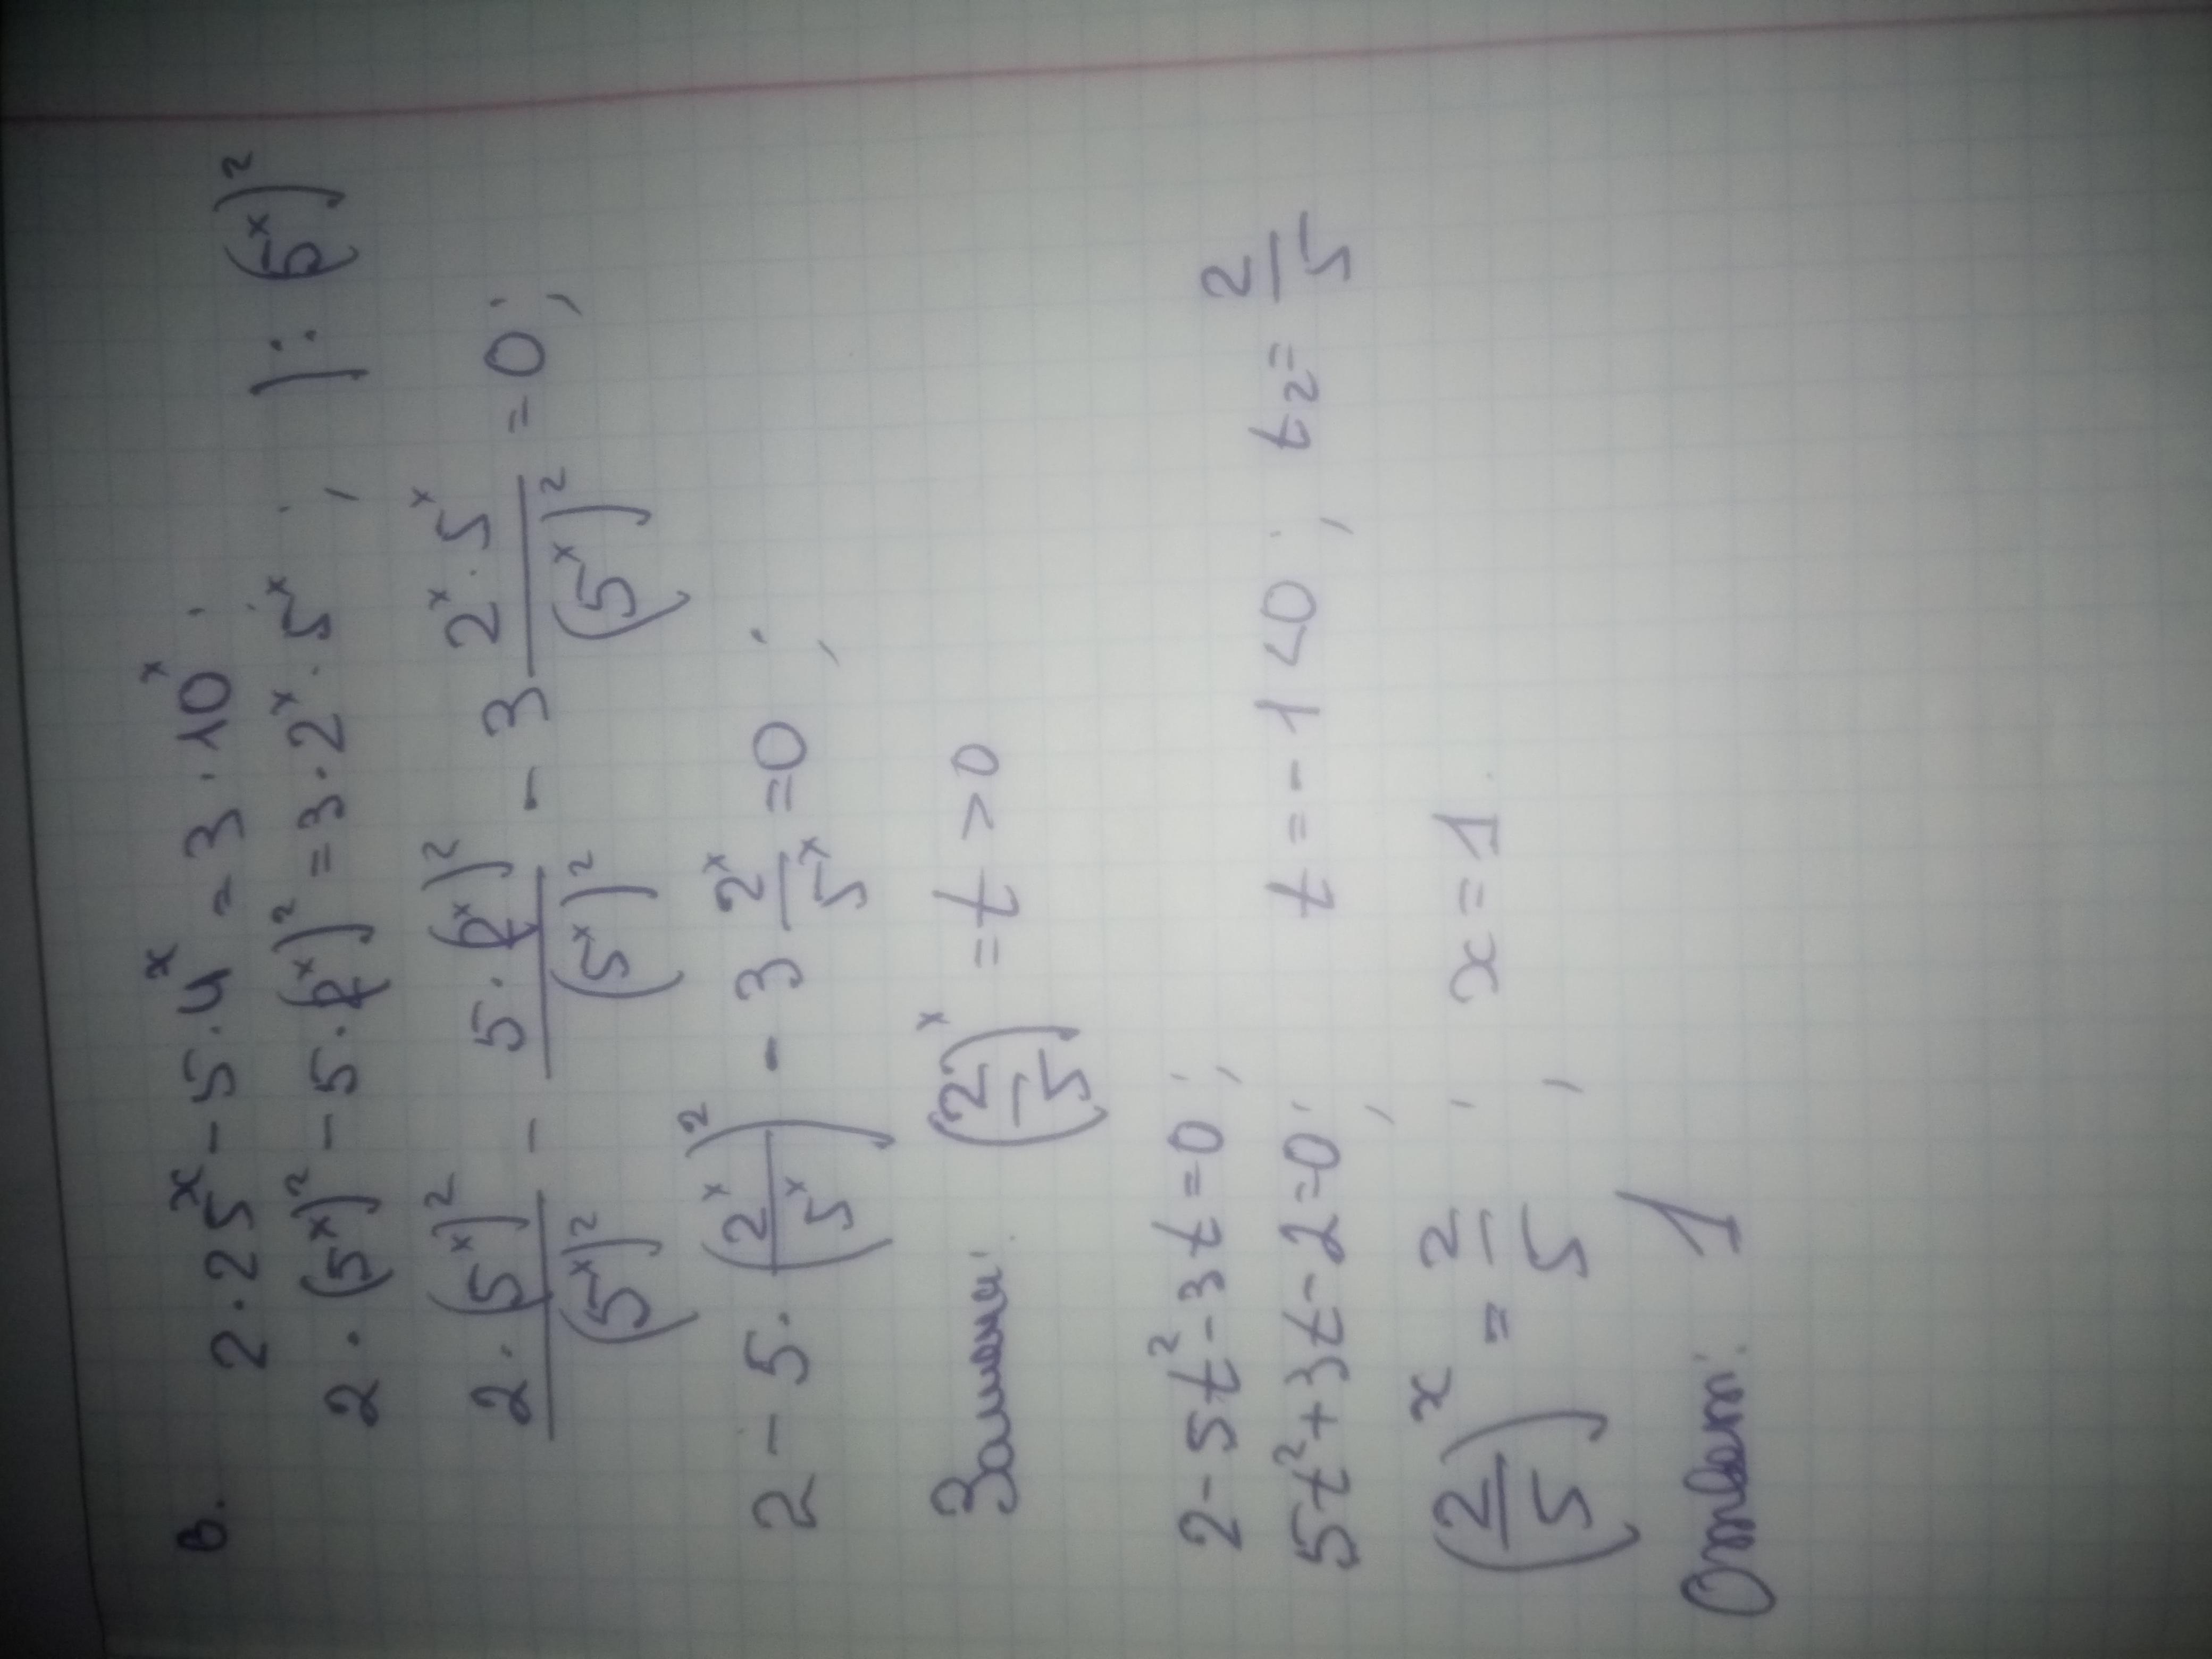 в. 2·25ˣ - 5·4ˣ = 3·10ˣ;
2·(5ˣ)² - 5·(2ˣ)² = 3·2ˣ·5ˣ; |:(5ˣ)²
2·(5ˣ)²/(5ˣ)² - 5·(2ˣ)²/(5ˣ)² - 3 2ˣ·5ˣ/(5ˣ)² = 0;
2 - 5·(2ˣ/5ˣ)² - 3 2ˣ/5ˣ = 0;
Замена: (2/5)ˣ = t > 0
2 - 5t² - 3t = 0;
5t² + 3t - 2 = 0; t = -1 < 0; t₂ = 2/5
(2/5)ˣ = 2/5; x = 1.
Ответ: 1